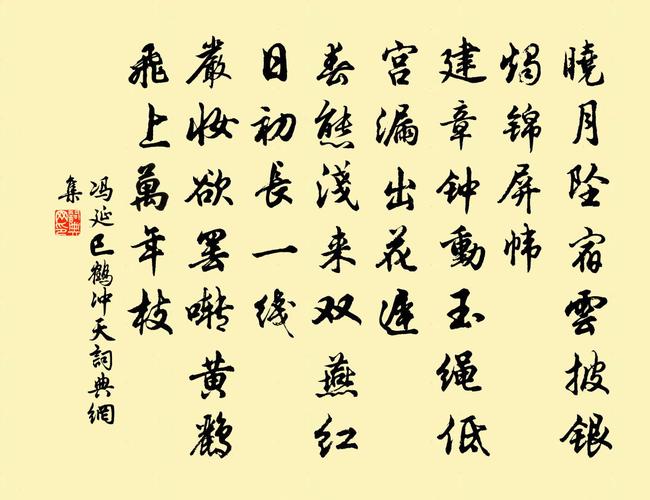 曉月坠宿雲披銀
燭锦屏帏
建章钟動玉绳低
宫漏出花遲
春態淺来双燕红
日初長一线
嚴妆欲罢啭黄鸝
飛上萬年枝
冯延巳鶴冲天詞典網
集